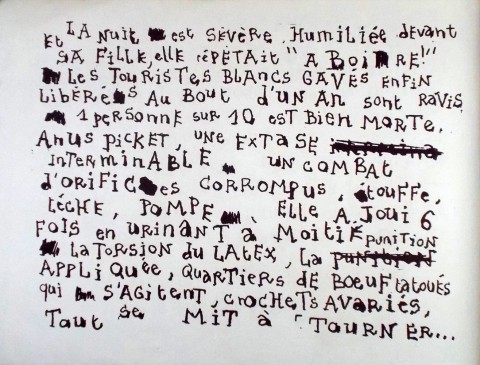 Et LA NUit est SÉVÈRE, HUMILIÉE DEVANT
SA FILLE, elle RÉPÉTAIT "A BOIRRE!"
LES TOURISTES BLANCS GAVÉS ENFIN
LIBÉRÉS AU BOUT D'UN AN sont RAVIS
1 PERSONNE SUR 10 EST BIEN MORTE.
ANUS PICKET, UNE EXTASE
INTERMINABLE UN COMBAT
d'ORIFICES CORROMPUS, étouffe,
LÈCHE, POMPE, ELLE A JOUI 6
FOIS en URINANT A MOITIÉ PUNITION
LA TORSION DU LATEX, LA PUNITION
APPLIQUÉE, QUARTIERS DE BOEUF TATOUÉS
qui S'AGITENT, CROCHETS AVARIÉS,
Tout SE MIT À TOURNER...